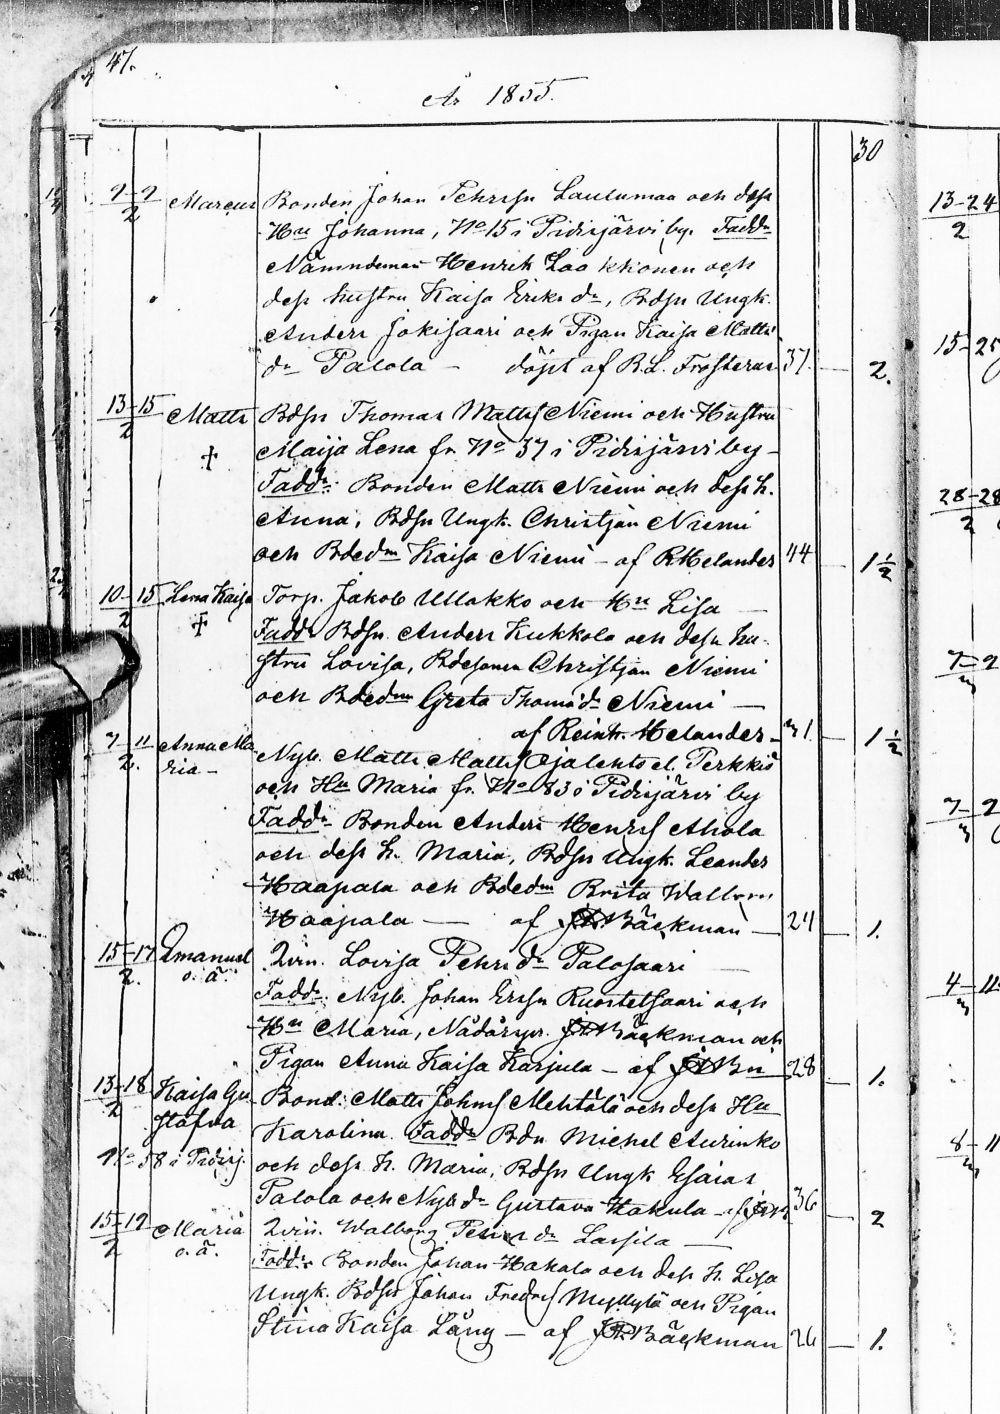 47.
År 1855.
30
9-9/2 Marcus Bonden Johan Pehrsn Laulumaa och dess
Hu Johanna, No 15 i Pidisjärvi by. Faddr
Nämndeman Henrik Laakkonen och
dess hustru Kaisa Eriks dr, Bdsn Ungk.
Anders Jokisaari och Pigan Kaisa Matts
dr Palola — döpt af R.L. Frosterus 37 — 2.
13-15/2 Matts Bdsn Thomas Matts Niemi och Hustru
+ Maija Lena fr. No 37 i Pidisjärvi by —
Faddr. Bonden Matts Niemi och dess h.
Anna, Bdsn Ungk. Christjan Niemi
och Bdedm Kaisa Niemi — af RHelander 44 — 1 1/2
10-15/2 Lena Kaisa Torp. Jakob Ullakko och Hu Lisa —
+ Faddr Bdsn. Anders Kukkola och dess hu-
stru Lovisa, Bdesonen Christjan Niemi
och Bdedm Greta Thomædr Niemi —
af Reinh. Helander — 31 — 1 1/2
7-11/2. Anna Ma- Nyb. Matts Matts Ojalehto el. Perkkiö
ria — och Hu Maria fr. No 83 i Pidisjärvi by
Faddr Bonden Anders Henrs Ahola
och dess h. Maria, Bdsn Ungk. Leander
Haapala och Bdedm Brita Walborg
Haapala — af Bäckman — 24 — 1.
15-17/2. Emanuel Qvin. Lovisa Pehrs dr Palosaari —
o. ä. Faddr. Nyb. Johan Erssn Ruostetsaari och
Hu Maria, Bäckman och
Pigan Anna Kaisa Karjula — af 28 — 1.
13-18/2 Kaisa Gu- Bond. Matts Johns Mehtälä och dess Hu
stafva Karolina. Faddr Bdn Michel Aurinko
No 58 i Pidisj. och dess h. Maria, Bdsn Ungk Esaias
Palola och Nyb dr Gustava Hakula — af 36 — 2
15-19/2 Maria Qvin. Walborg dr Lassila —
o. ä. Faddr. Bonden Johan Hakala och dess h. Lisa
Ungk. Bdsn Johan Fredrs Myllylä och Pigan
Stina Kaisa Lång — af Bäckman 26 — 1.
13-24/2
15-25
28-28/2